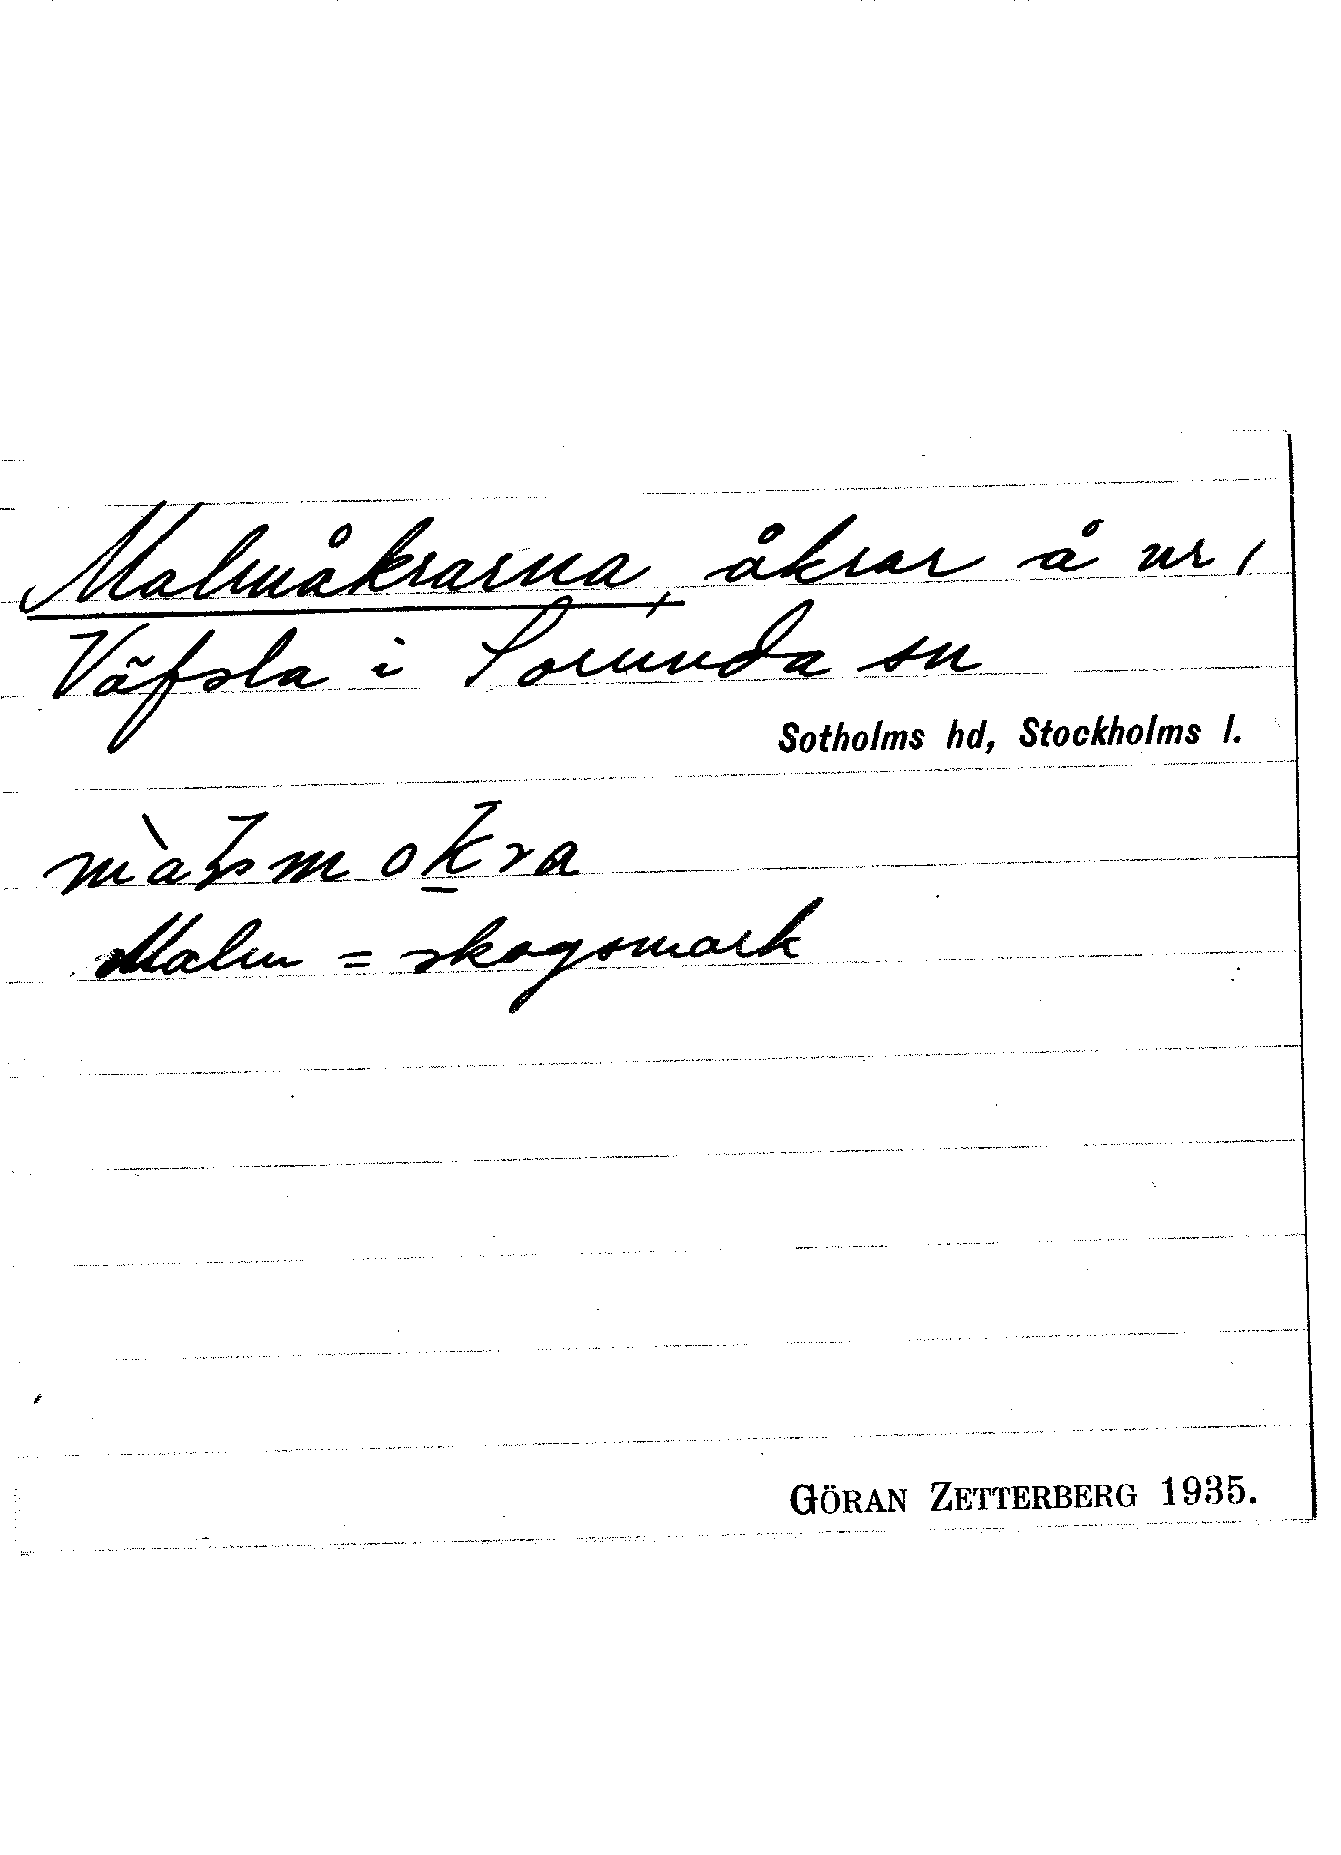 Malmåkrarna, åkrar å nr 1
Väfsla i Sorunda sn
Sotholms hd, Stockholms l.
Malm = skogsmark
GÖRAN ZETTERBERG 1935.